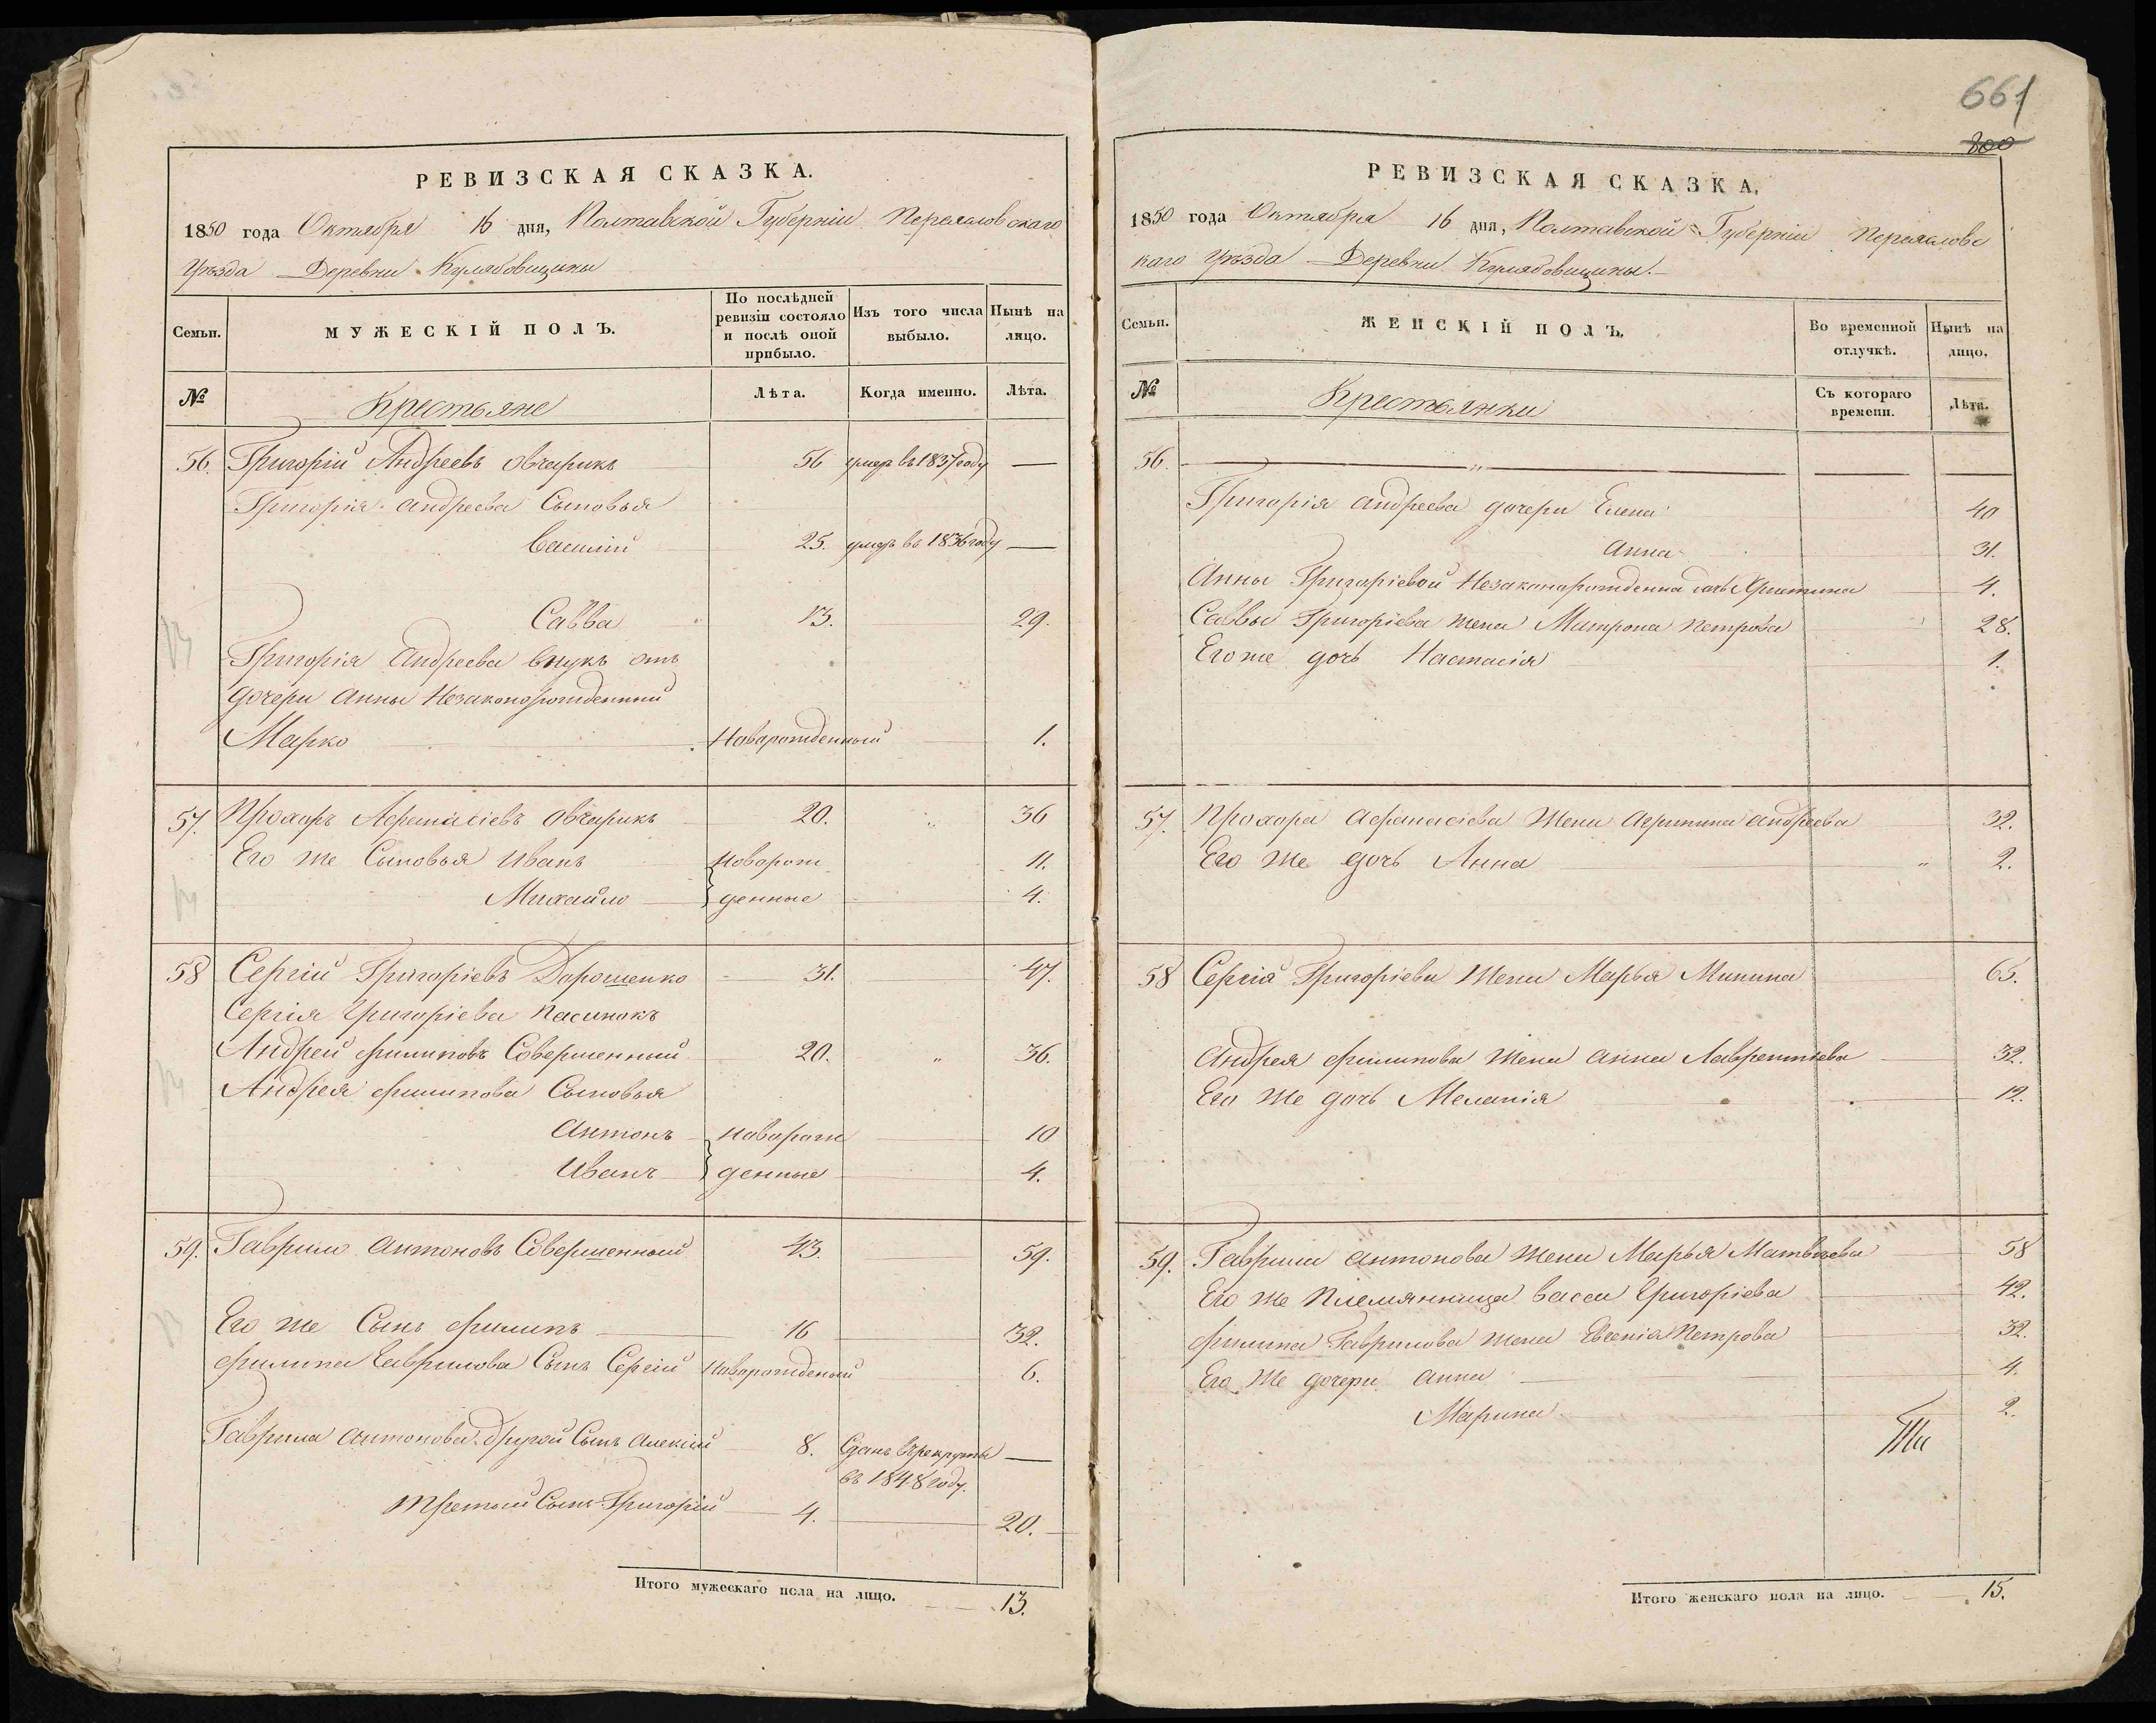 РЕВИЗСКАЯ СКАЗКА.
1850 года Октября 16 дня, Полтавской Губерніи Переяловскаго
Уѣзда Деревни Кулябовщины
Семьи.
МУЖЕСКІЙ ПОЛЪ.
По послѣдней ревизіи состояло и послѣ оной прибыло.
Изъ того числа выбыло.
Нынѣ на лицо.
№
Крестьяне
Лѣта.
Когда именно.
Лѣта.
56. Григорій Андреевъ Овчарикъ 56 умеръ въ 1837 году —
Григорія Андреева Сыновья
Василій 25. умеръ въ 1836 году —
Савва 13. 29.
Григорія Андреева внукъ отъ
дочери Анны Незаконорожденный
Марко Новорожденный 1.
57. Прохоръ Афанасіевъ Овчарикъ 20. „ 36
Его же Сыновья Иванъ Новорож 11.
Михайло денные 4.
58 Сергій Григоріевъ Дорошенко 31. 47.
Сергія Григоріева Пасинокъ
Андрей Филиповъ Совершенный 20. „ 36.
Андрея Филипова Сыновья
Антонъ Новорож 10
Иванъ денные 4.
59. Гаврило Антоновъ Совершенный 43. 59.
Его же Сынъ Филипъ 16 32.
Филипа Гаврилова Сынъ Сергій Новорожденый 6.
Гаврила Антонова другой Сынъ Алексій 8. Сданъ въ рекруты —
въ 1848 году.
третый Сынъ Григорій 4. 20.
Итого мужескаго пола на лицо. 13.
661
800
РЕВИЗСКАЯ СКАЗКА.
1850 года Октября 16 дня, Полтавской Губерніи Переяловс
каго Уѣзда Деревни Кулябовщины.
Семьи.
ЖЕНСКІЙ ПОЛЪ.
Во временной отлучкѣ.
Нынѣ на лицо.
№
Крестьянки
Съ котораго времени.
Лѣта.
56. — „ — — —
Григорія Андреева дочери Елена 40
Анна 31.
Анны Григоріевой Незаконорожденна дочь Христина 4.
Саввы Григоріева жена Матрона Петрова 28.
Его же дочь Настасія 1.
57. Прохора Афанасіева Жена Агрипина Андреева 32.
Его же дочь Анна „ 2.
58 Сергія Григоріева Жена Марья Минина 65.
Андрея Филипова жена Анна Лаврентіева 32.
Его же дочь Меланія 12.
59. Гаврила Антонова жена Марья Матвѣева 58
Его же Племянница Васса Григоріева 42.
Филипа Гаврилова жена Евгенія Петрова 32.
Его же дочери Анна 4.
Марина 2.
Итого женскаго пола на лицо. 15.